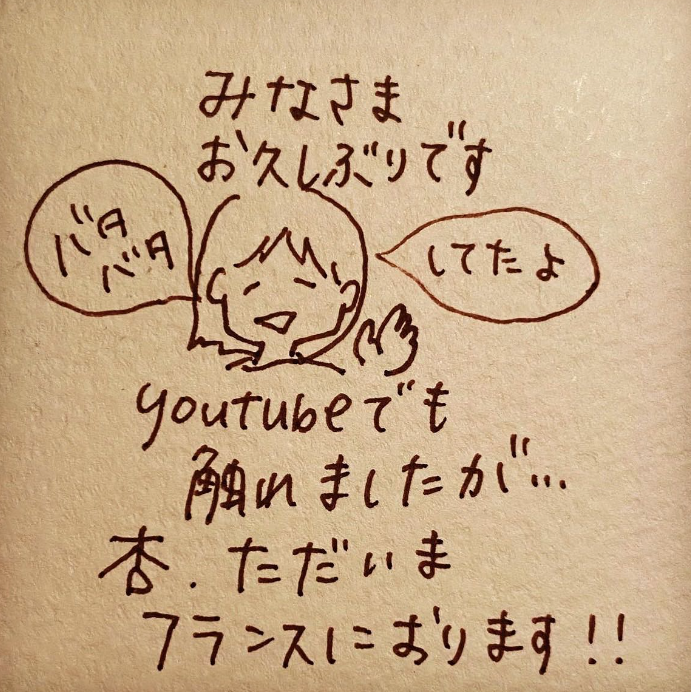 みなさま
お久しぶりです
バタ
バタ
してたよ
youtubeでも
触れましたが…
杏.ただいま
フランスにおります!!